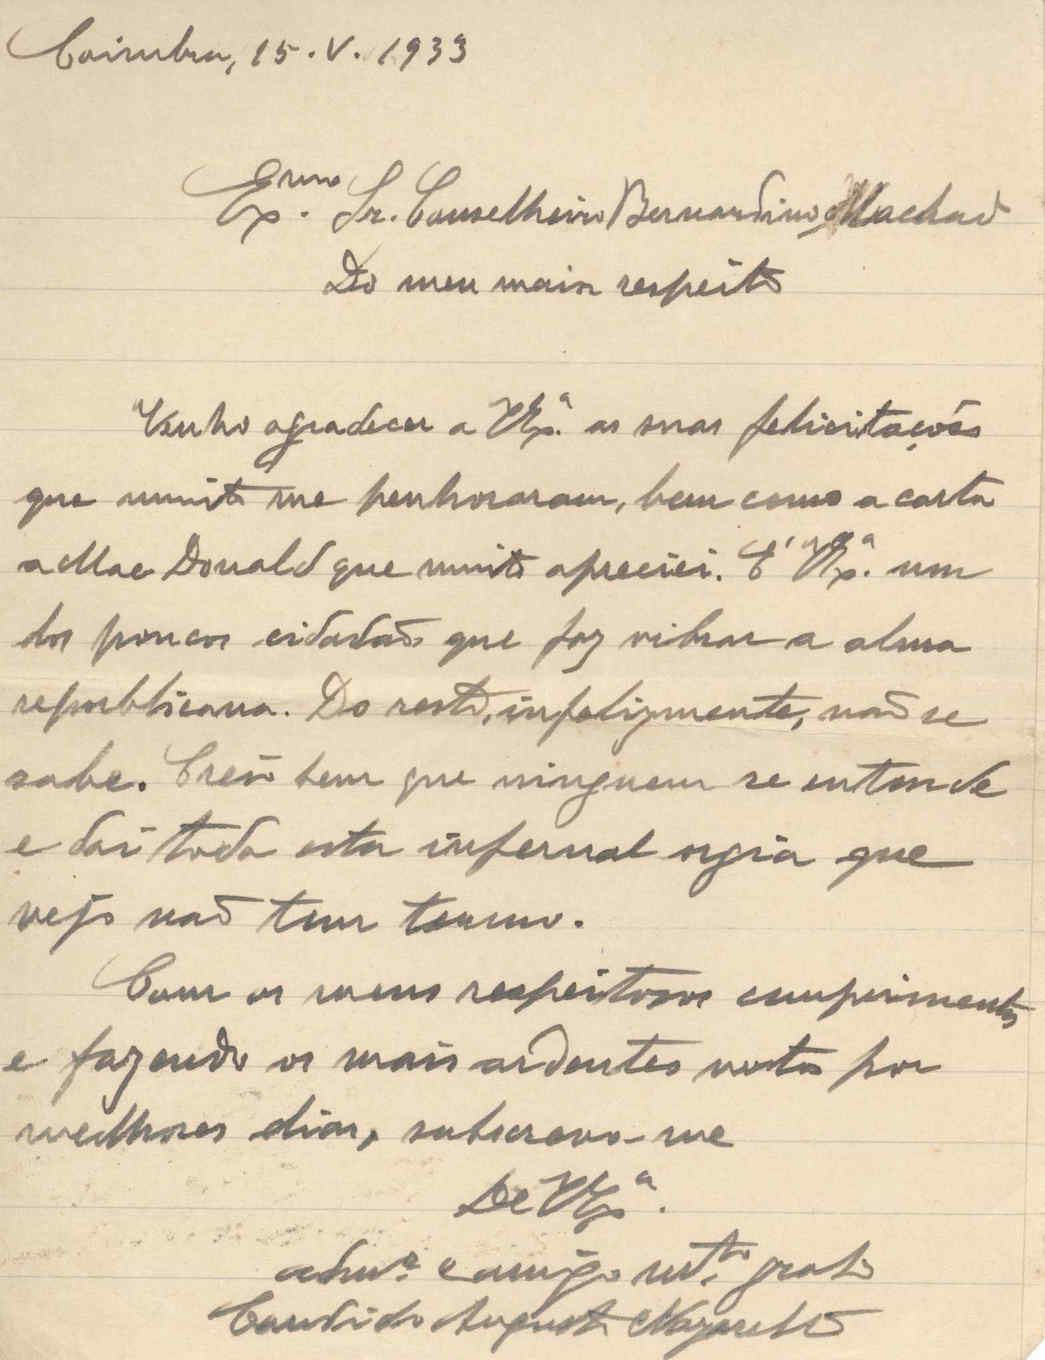 Coimbra, 15.V.1933
Exmo. Sr. Conselheiro Bernardino Machado
Do meu maior respeito
Venho agradecer a V. Exª. as suas felicitações
que muito me penhoraram, bem como a carta
a Mac Donald que muito apreciei. É V. Exª. um
dos poucos cidadãos que faz vibrar a alma
republicana. Do resto, infelizmente, não se
sabe. Creio bem que ninguem se entende
e daí toda esta infernal orgia que
vejo não tem termo.
Com os meus respeitosos cumprimentos
e fazendo os mais ardentes votos por
melhores dias, subscrevo-me
De V. Exª.
admºr. e amigo mtº. grato
Candido Augusto Nazareth